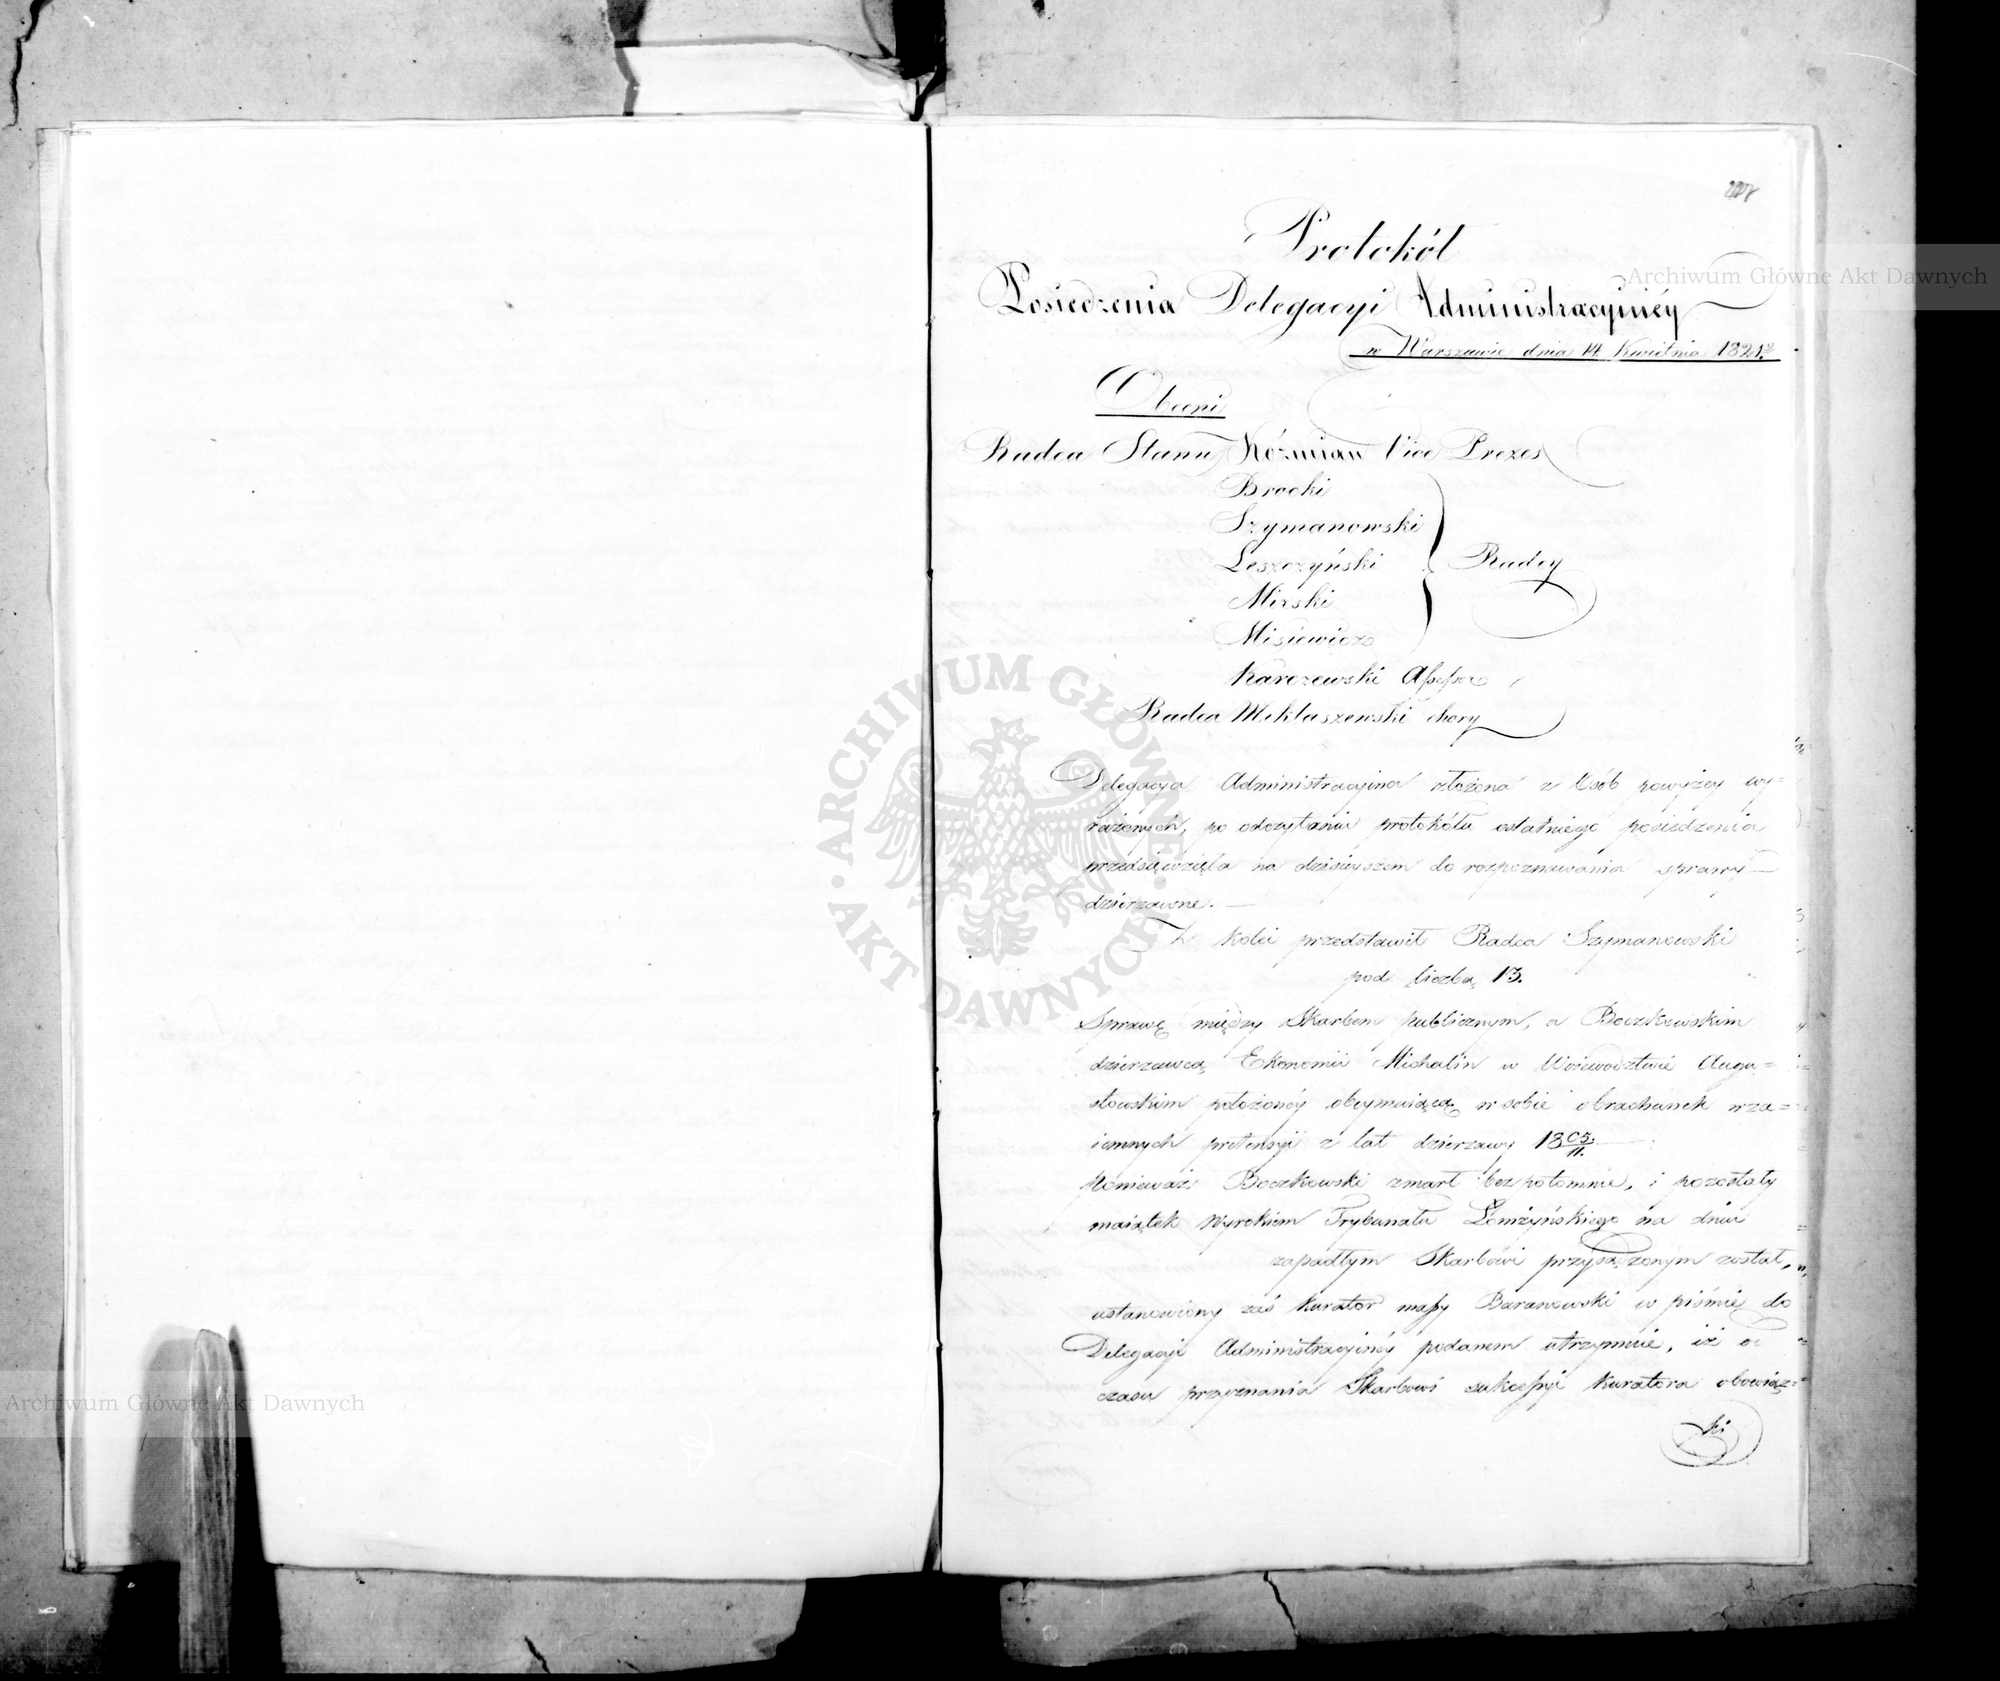 Protokół
Posiedzenia Delegacyi Administracyinéy
w Warszawie dnia 14 Kwietnia 1821.
Obecni
Radca Stanu Koźmian Vice Prezes
Brocki
Szymanowski
Leszczyński
Radcy
Mirski
Misiewicz
Karczewski Assessor
Radca Miklaszewski chory
Delegacya Administracyina złożona z Osób powyżey wy=
rażonych, po odczytaniu protokółu ostatniego posiedzenia
przedsięwzięła na dzisieyszem do rozpoznawania sprawy
dzierzawne.
Z kolei przedstawił Radca Szymanowski
pod liczbą 13.
Sprawę między Skarbem publicznym, a Boczkowskim
dzierzawcą Ekonomii Michalin w Woiewodztwie Augu=
stowskim położonéy obeymuiącą w sobie obrachunek wza=
iemnych pretensyi z lat dzierzawy 18 05/11.
Ponieważ Boczkowski zmarł bezpotomnie, i pozostały
maiątek wyrokiem Trybunału Łomżyńskiego na dniu
zapadłym Skarbowi przysądzonym został,
ustanowiony zaś Kurator massy Baranowski w piśmie do
Delegacyi Administracyinéy podanem utrzymuie, iż od
czasu przyznania Skarbowi sukcessyi Kuratora obowiąz=
ki
Archiwum Główne Akt Dawnych
ARCHIWUM GŁÓWNE AKT DAWNYCH
Archiwum Główne Akt Dawnych